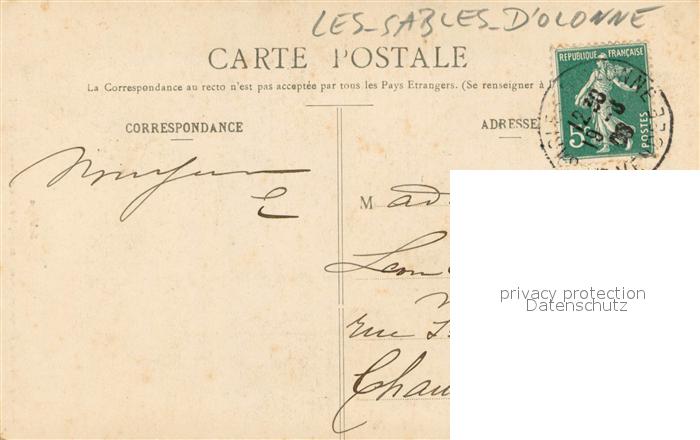 LES-SABLES-D'OLONNE
CARTE POSTALE
La Correspondance au recto n'est pas acceptée par tous les Pays Etrangers. (Se renseigner à l
CORRESPONDANCE
ADRESSE
REPUBLIQUE FRANÇAISE
5
POSTES
VENDEE
M ad
Leon
rue
Chau
privacy protection
Datenschutz